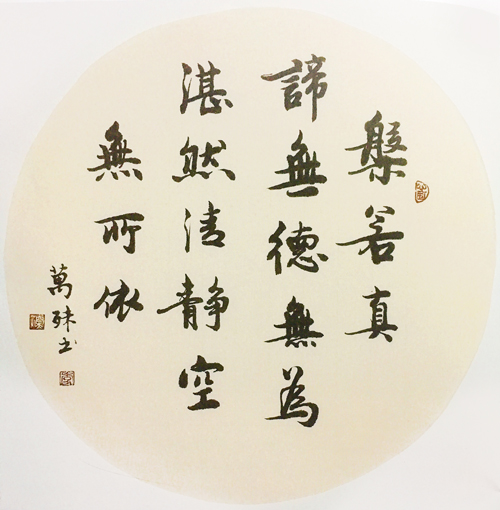 槃若真
諦無德無為
湛然清靜空
無所依
萬殊书